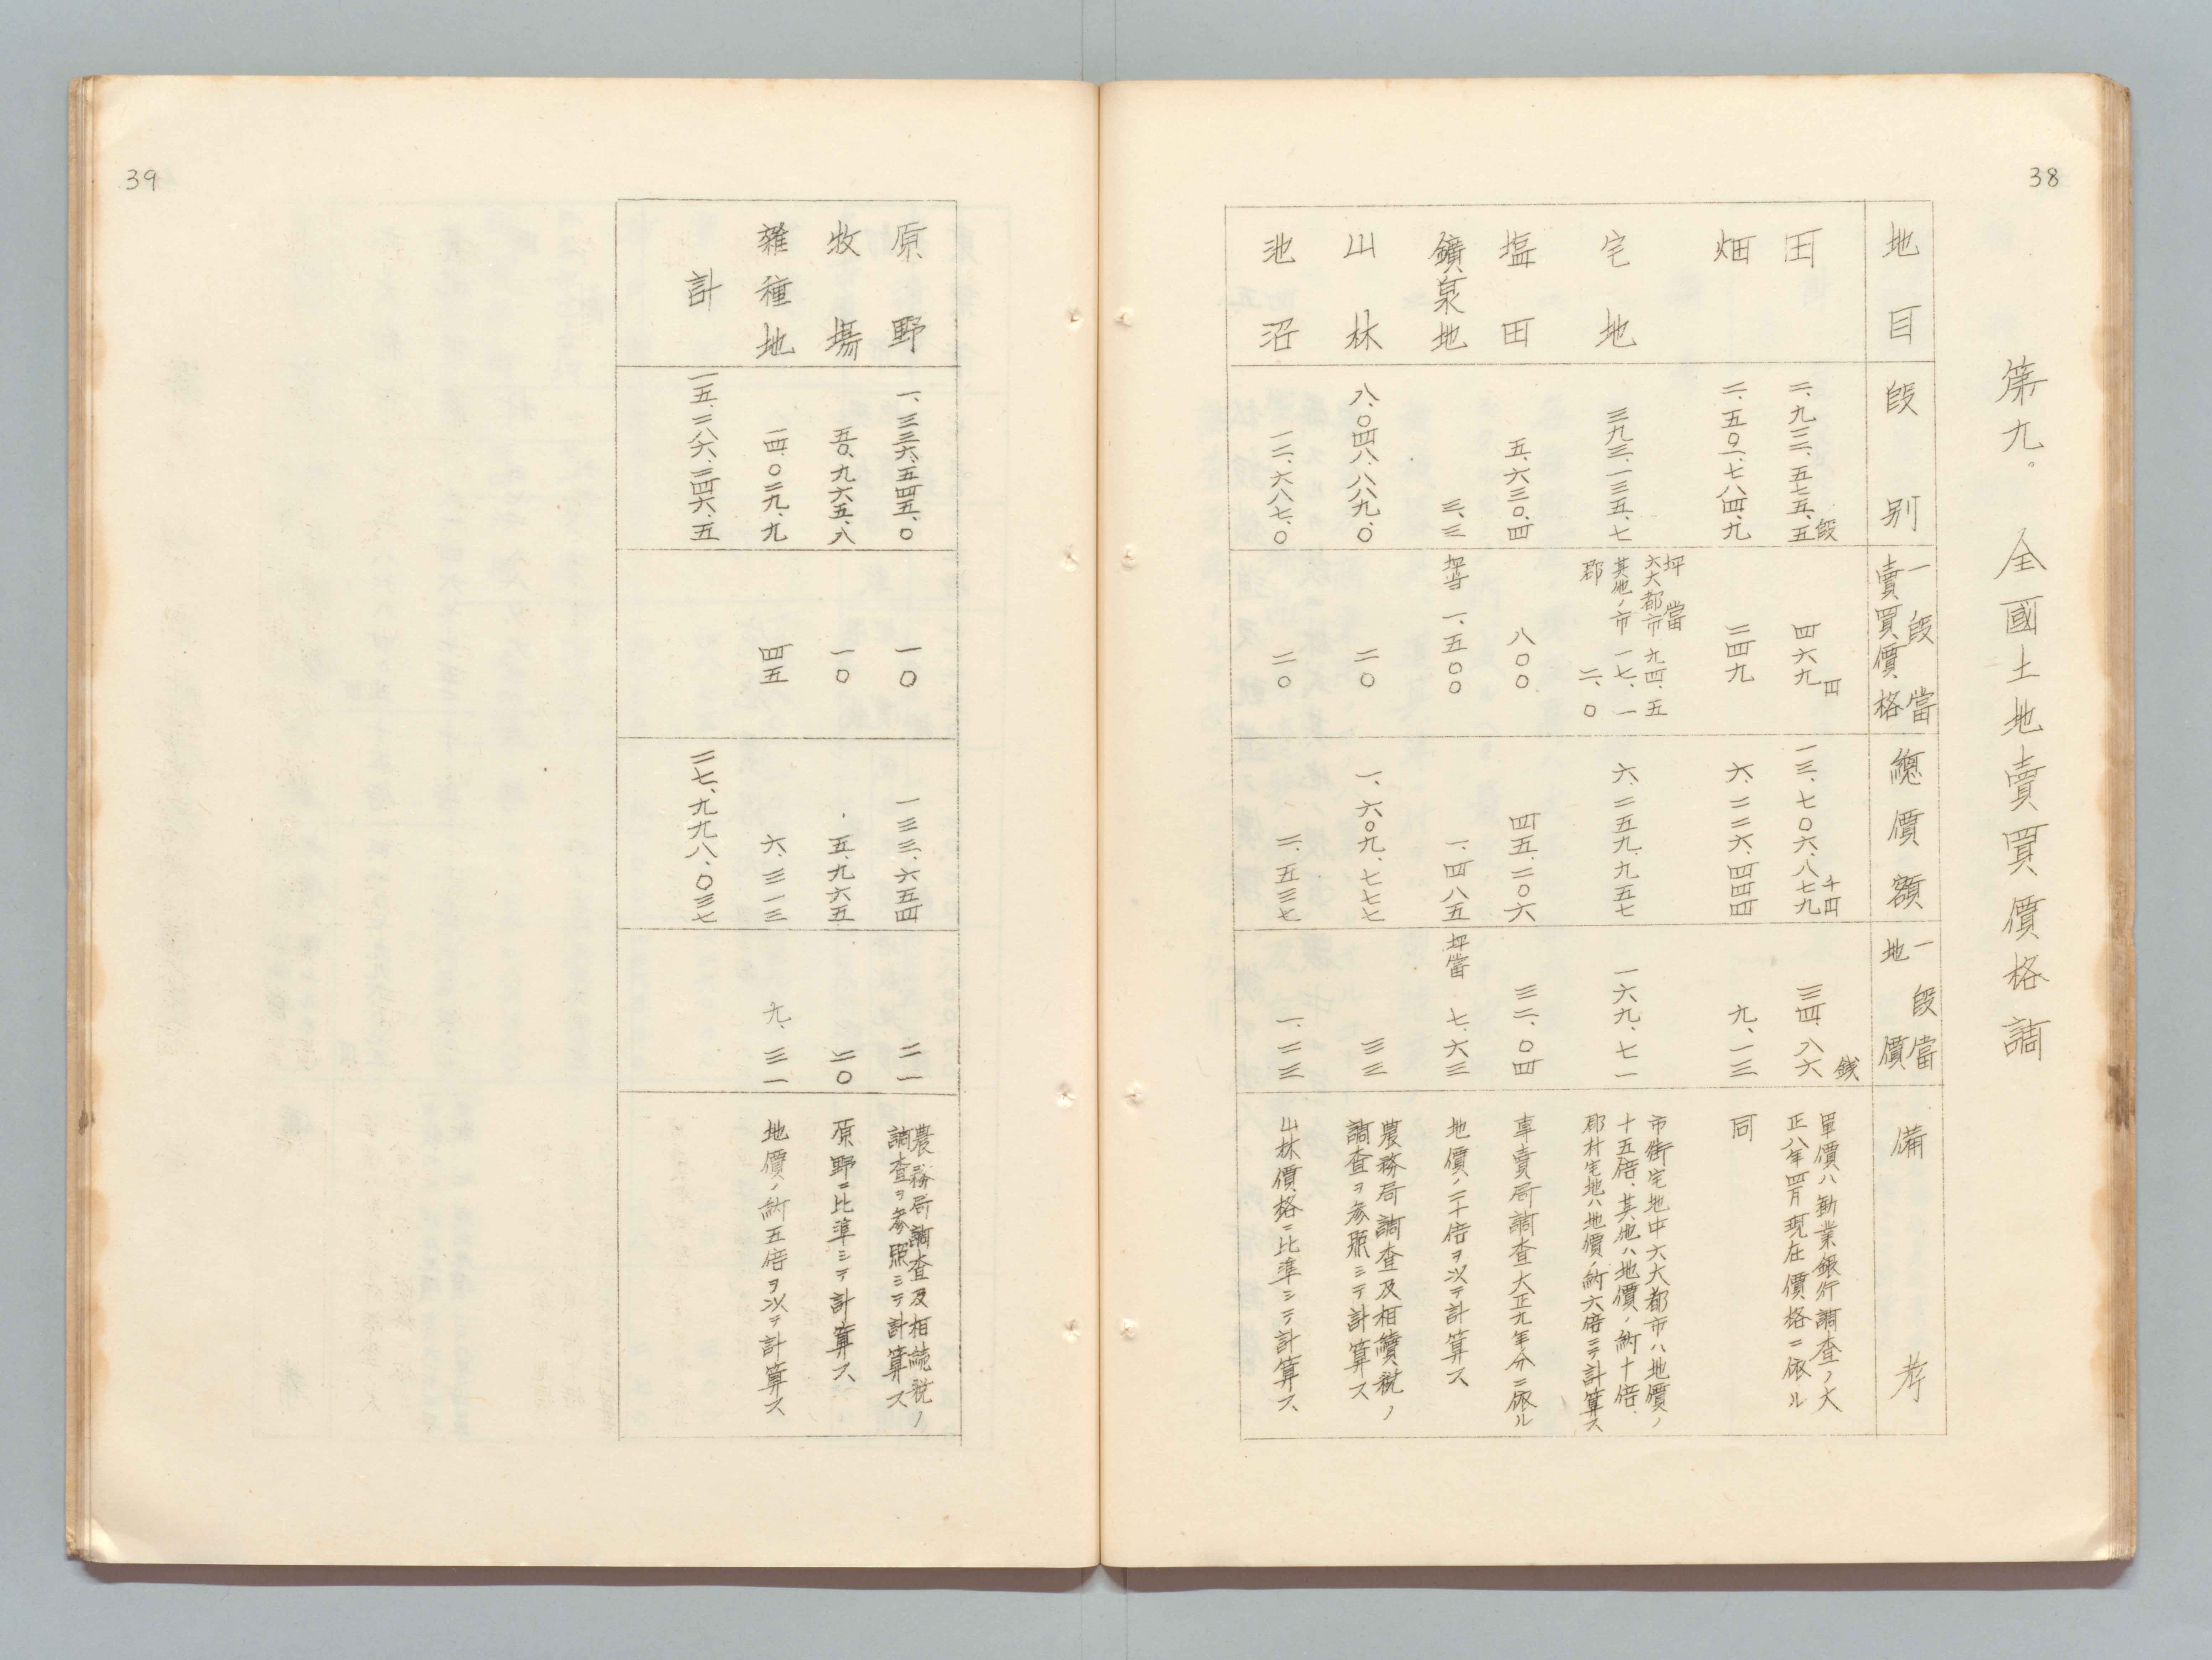 38
第九。全國土地賣買價格調
地目
段別
一段當
賣買價格
總價額
一段當
地價
備考
田
二、九二二、五七五、五
段
四六九
円
一三、七〇六、八七九
千円
三四、八六
銭
單價ハ勸業銀行調査ノ大
正八年四月現在價格ニ依ル
畑
二、五〇一、七八四、九
二四九
六、二二六、四四四
九、一三
同
宅地
三九三、一三五、七
坪當
六大都市 九四、五
其他ノ市 一七、一
郡 二、〇
六、二五九、九五七
一六九、七一
市街宅地中六大都市ハ地價ノ
十五倍、其他ハ地價ノ約十倍、
郡村宅地ハ地價ノ約六倍ニテ計算ス
塩田
五、六三〇、四
八〇〇
四五、二〇六
三二、〇四
専賣局調査大正九年分ニ依ル
鑛泉地
三、三
坪当 一、五〇〇
一、四八五
坪當 七、六三
地價ノ二十倍ヲ以テ計算ス
山林
八、〇四八、八八九、〇
二〇
一、六〇九、七七七
三三
農務局調査及相續税ノ
調査ヲ参照シテ計算ス
池沼
一二、六八七、〇
二〇
二、五三七
一、二三
山林價格ニ比準シテ計算ス
39
原野
一、三三六、五四五、〇
一〇
一三三、六五四
二一
農務局調査及相続税ノ
調査ヲ参照シテ計算ス
牧場
五〇、九六五、八
一〇
五、九六五
二〇
原野ニ比準シテ計算ス
雜種地
一四、〇二九、九
四五
六、三一三
九、三一
地價ノ約五倍ヲ以テ計算ス
計
一五、二八六、二四六、五
二七、九九八、〇三七